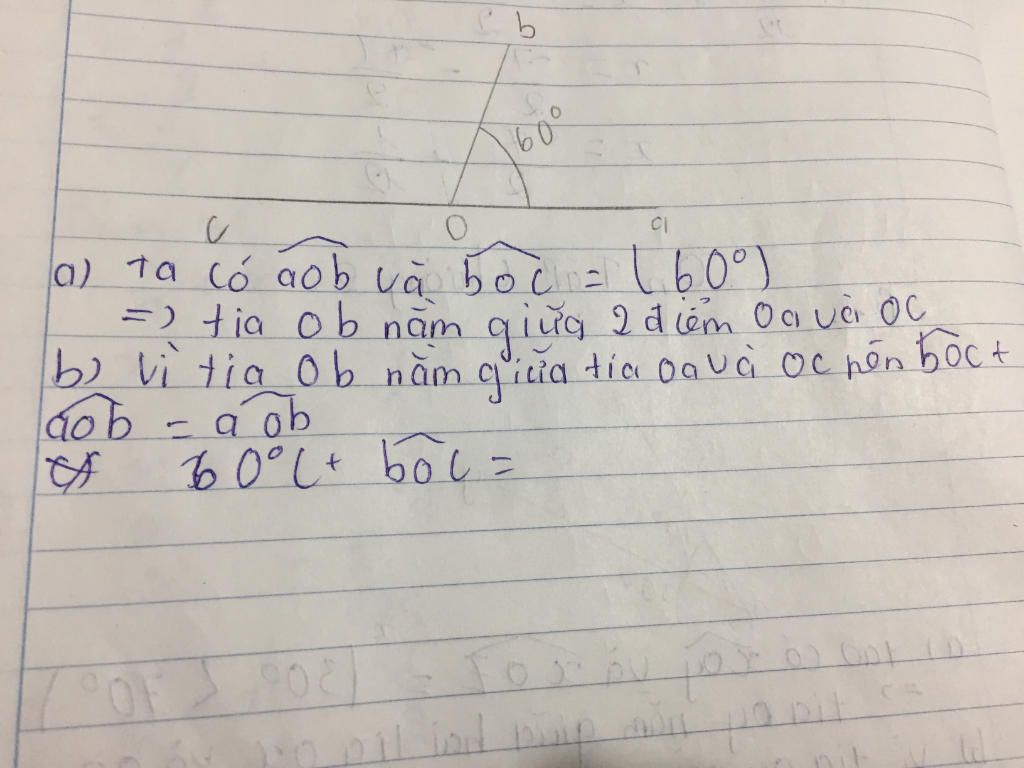 b
60°
c O a
a) ta có aob và boc = (60°)
=> tia Ob nằm giữa 2 điểm Oa và Oc
b) Vì tia Ob nằm giữa tia oa và oc nên boc +
aob = aob
60°C + boc =